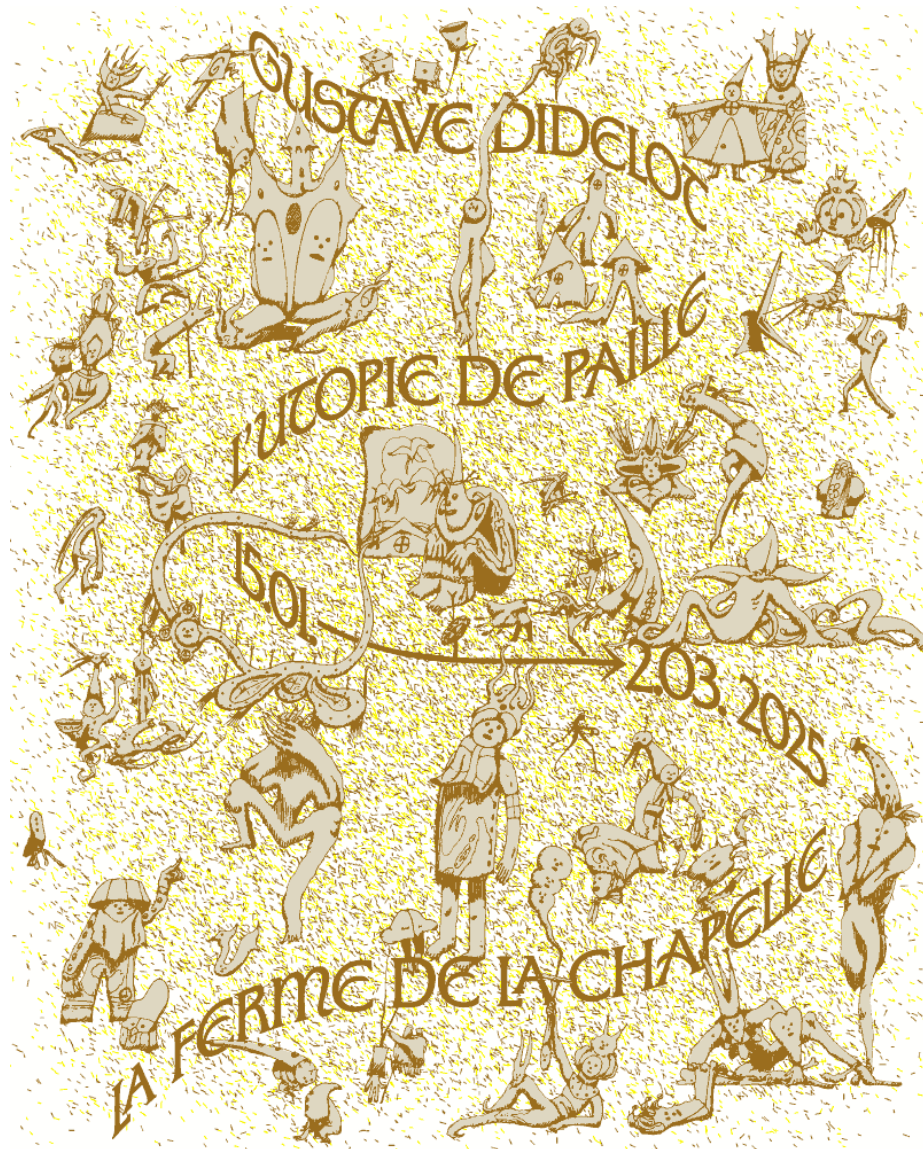 GUSTAVE DIDELOT
L'UTOPIE DE PAILLE
15.01.
2.03.2025
LA FERME DE LA CHAPELLE